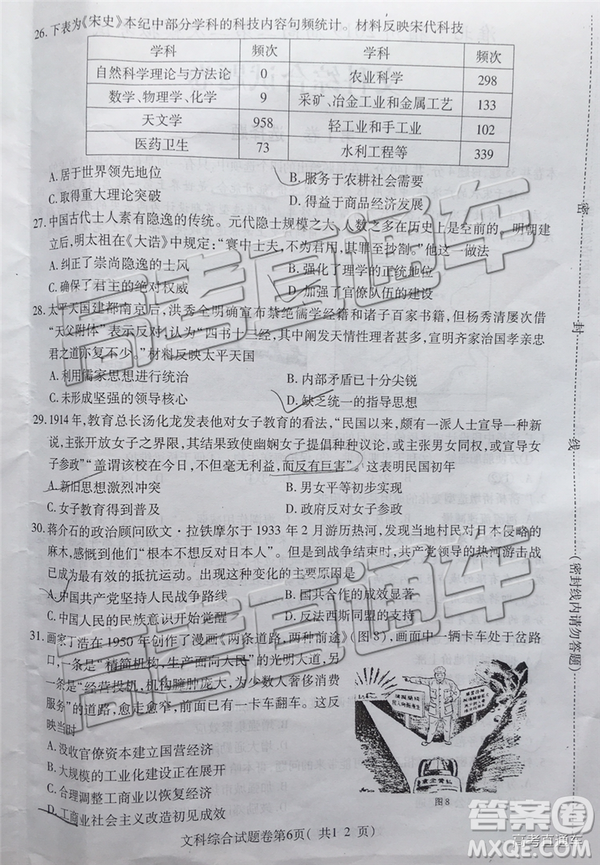 26.下表为《宋史》本纪中部分学科的科技内容句频统计。材料反映宋代科技
学科 频次 学科 频次
自然科学理论与方法论 0 农业科学 298
数学、物理学、化学 9 采矿、冶金工业和金属工艺 133
天文学 958 轻工业和手工业 102
医药卫生 73 水利工程等 339
A.居于世界领先地位 B.服务于农耕社会需要
C.取得重大理论突破 D.得益于商品经济发展
27.中国古代士人素有隐逸的传统。元代隐士规模之大、人数之多在历史上是空前的。明朝建
立后,明太祖在《大诰》中规定:“寰中士夫,不为君用者,罪至抄劄。”他这一做法
A.纠正了崇尚隐逸的士风 B.强化了理学的正统地位
C.确保了君主的绝对权威 D.加强了官僚队伍的建设
28.太平天国建都南京后,洪秀全明确宣布禁绝儒学经籍和诸子百家书籍,但杨秀清屡次借
“天父附体”表示反对,认为“四书十三经,其中阐发天情性理者甚多,宣明齐家治国孝亲忠
君之道亦复不少。”材料反映太平天国
A.利用儒家思想进行统治 B.内部矛盾已十分尖锐
C.未形成坚强的领导核心 D.缺乏统一的指导思想
29.1914年,教育总长汤化龙发表他对女子教育的看法,“民国以来,颇有一派人士倡导一种新
说,主张开放女子之界限,其结果致使幽娴女子提倡种种议论,或主张男女同权,或倡导女
子参政”“盖谓该校已人,毫无利益,而反有巨害”。这表明民国初年
A.新旧思想激烈冲突 B.男女平等初步实现
C.女子教育得到普及 D.政府反对女子参政
30.蒋介石的政治顾问欧文·拉铁摩尔于1933年2月游历热河,发现当地村民对日本侵略的
麻木,感慨到他们“根本不想反对日本人”。但是,到战争结束时,共产党领导的热河游击战
已成为最有效的抵抗运动。出现这一变化的主要原因是
A.中国共产党坚持人民战争路线 B.国共合作的成效显著
C.中国人民的民族意识开始觉醒 D.反法西斯同盟的建立
31.画家丁浩在1950年创作了漫画《两条道路,两种前途》(图8),画面中一辆卡车处于岔路
口,一条是“精简机构,生产面向大民”的光明大道,另
一条是“经营投机,机构臃肿庞大,为少数人奢侈消费
而服务”的危险道路,路旁还有一卡车翻车。这反映
当时
A.没收官僚资本建立国营经济
B.大规模的工业化建设正在展开
C.合理调整工商业以发展经济
D.工商业社会主义改造初见成效
图8
文科综合试题卷第6页(共12页)
密
封
线
(密封线内请勿答题)
高考直通车
高考直通车
答案卷
高考直通车